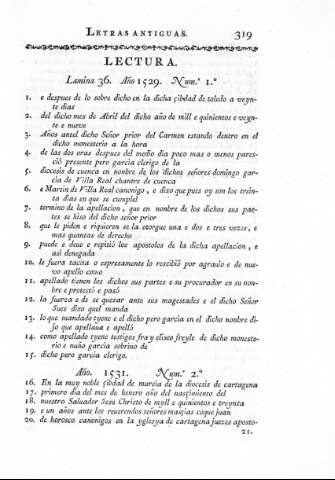 LETRAS ANTIGUAS. 319
LECTURA.
Lamina 36. Año 1529. Num.º 1.º
1. e despues de lo sobre dicho en la dicha çibdad de toledo a veyn-
te dias
2. del dicho mes de Abril del dicho año de mill e quinientos e veyn-
te e nueve
3. Años antel dicho Señor prior del Carmen estando dentro en el
dicho monesterio a la hora
4. de las dos oras despues del medio dia poco mas o menos pares-
ció presente pero garcia clerigo de la
5. diocesis de cuenca en nombre de los dichos señores domingo gar-
cia de Villa Real chantre de cuenca
6. e Martin de Villa Real canonigo, e dixo que pues oy son los trein-
ta dias en que se cumple el
7. termino de la apellacion, que en nombre de los dichos sus par-
tes se hiso del dicho señor prior
8. que le piden e rquieren se la otorgue una e dos e tres vezes, e
mas quantas de derecho
9. puede e deue e repitió los apostolos de la dicha apellacion, e
asi denegada
10. le fuera tacita o espresamente lo rescibió por agrauio e de nue-
vo apello como
11. apellado tienen los dichos sus partes e su procurador en su nom-
bre e protestó e pasó
12. la fuerza e de se quexar ante sus magestades e el dicho Señor
Jues dixo quel manda
13. lo que mandado tyene e el dicho pero garcia en el dicho nombre di-
jo que apellaua e apelló
14. como apellado tyene testigos fray eliseo freyle de dicho moneste-
rio e nuño garcia sobrino de
15. dicho pero garcia clerigo.
Año. 1531. Num.º 2.º
16. En la muy noble çibdad de murcia de la diocesis de cartagena
17. primero dia del mes de henero año del nasçimiento del
18. nuestro Saluador Jesu Christo de myll e quinientos e treynta
19. e un años ante los reverendos señores maçias coque juan
20. de horosco canonigos en la yglesya de cartagena juezes aposto-
21.